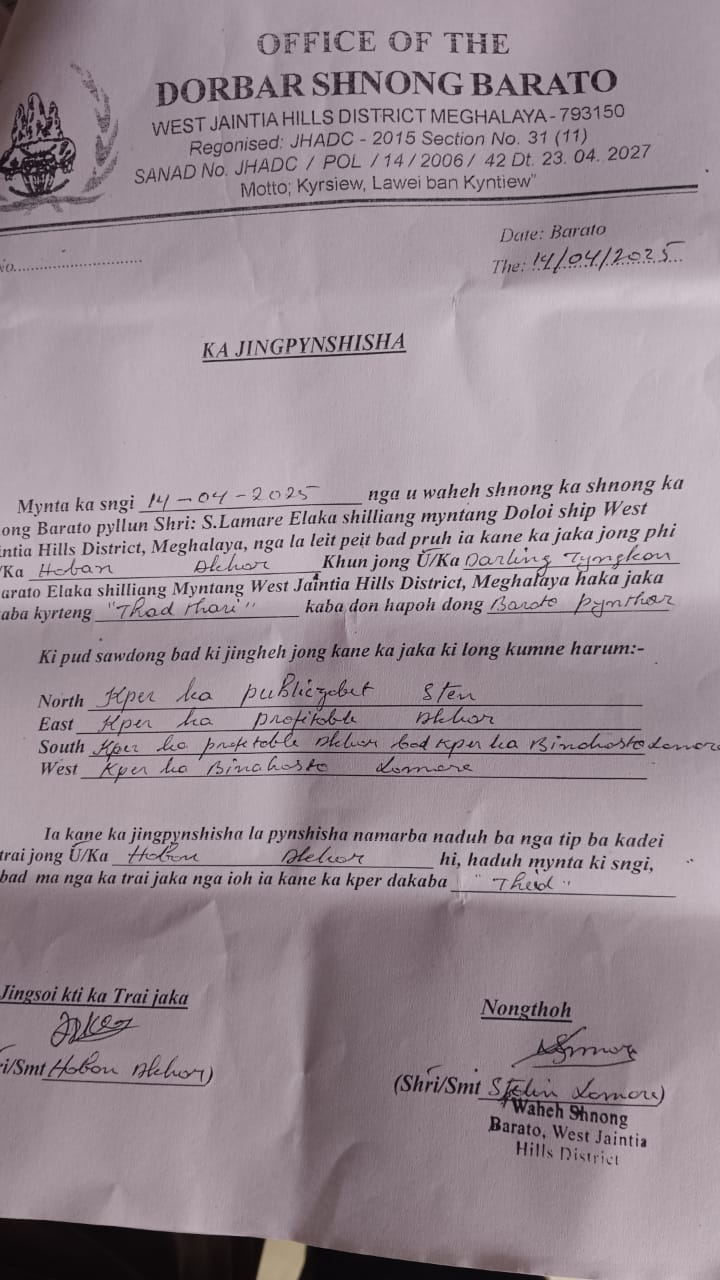 OFFICE OF THE
DORBAR SHNONG BARATO
WEST JAINTIA HILLS DISTRICT MEGHALAYA - 793150
Regonised: JHADC - 2015 Section No. 31 (11)
SANAD No. JHADC / POL / 14 / 2006 / 42 Dt. 23. 04. 2027
Motto; Kyrsiew, Lawei ban Kyntiew"
Date: Barato
No..............................
The: 14/04/2025
KA JINGPYNSHISHA
Mynta ka sngi 14-04-2025 nga u waheh shnong ka shnong ka
ong Barato pyllun Shri: S.Lamare Elaka shilliang myntang Doloi ship West
intia Hills District, Meghalaya, nga la leit peit bad pruh ia kane ka jaka jong phi
/Ka Hoban Dkhar Khun jong U/Ka Darling Tyngkan
arato Elaka shilliang Myntang West Jaintia Hills District, Meghalaya haka jaka
aba kyrteng "Thad thari" kaba don hapoh dong Barato pynthar
Ki pud sawdong bad ki jingheh jong kane ka jaka ki long kumne harum:-
North Kper ka Sten
East Kper ka profitable Dkhar
South Kper ka profetable Dkhar bad Kper ka Binahasto Lamare
West Kper ka Binahasto Lamare
Ia kane ka jingpynshisha la pynshisha namarba naduh ba nga tip ba kadei
trai jong U/Ka Hoban Dkhar hi, haduh mynta ki sngi,
bad ma nga ka trai jaka nga ioh ia kane ka kper dakaba "Thied"
Jingsoi kti ka Trai jaka
Nongthoh
ri/Smt Hoban Dkhar)
(Shri/Smt Stelin Lamare)
Waheh Shnong
Barato, West Jaintia
Hills District